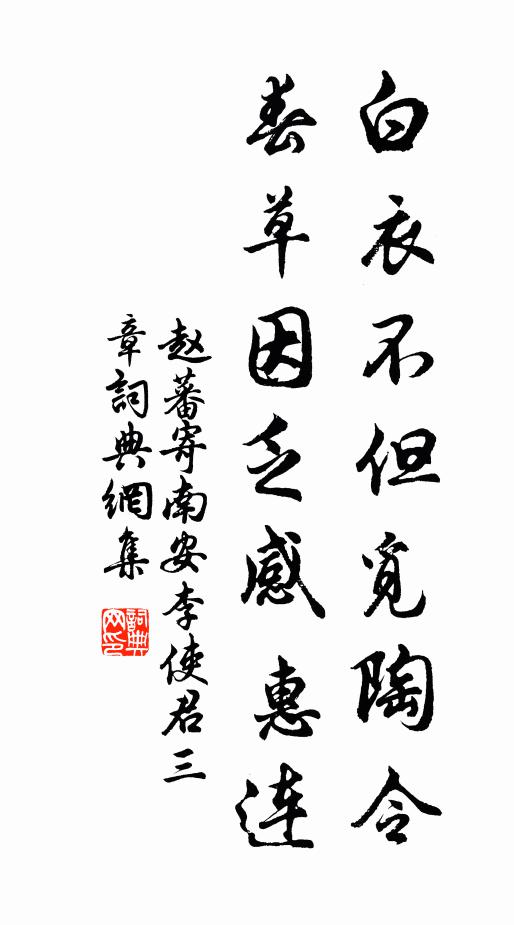 白衣不但觅陶令
春草因乏感惠连
赵蕃寄南安李使君三
章詞典網集
詞典
网印